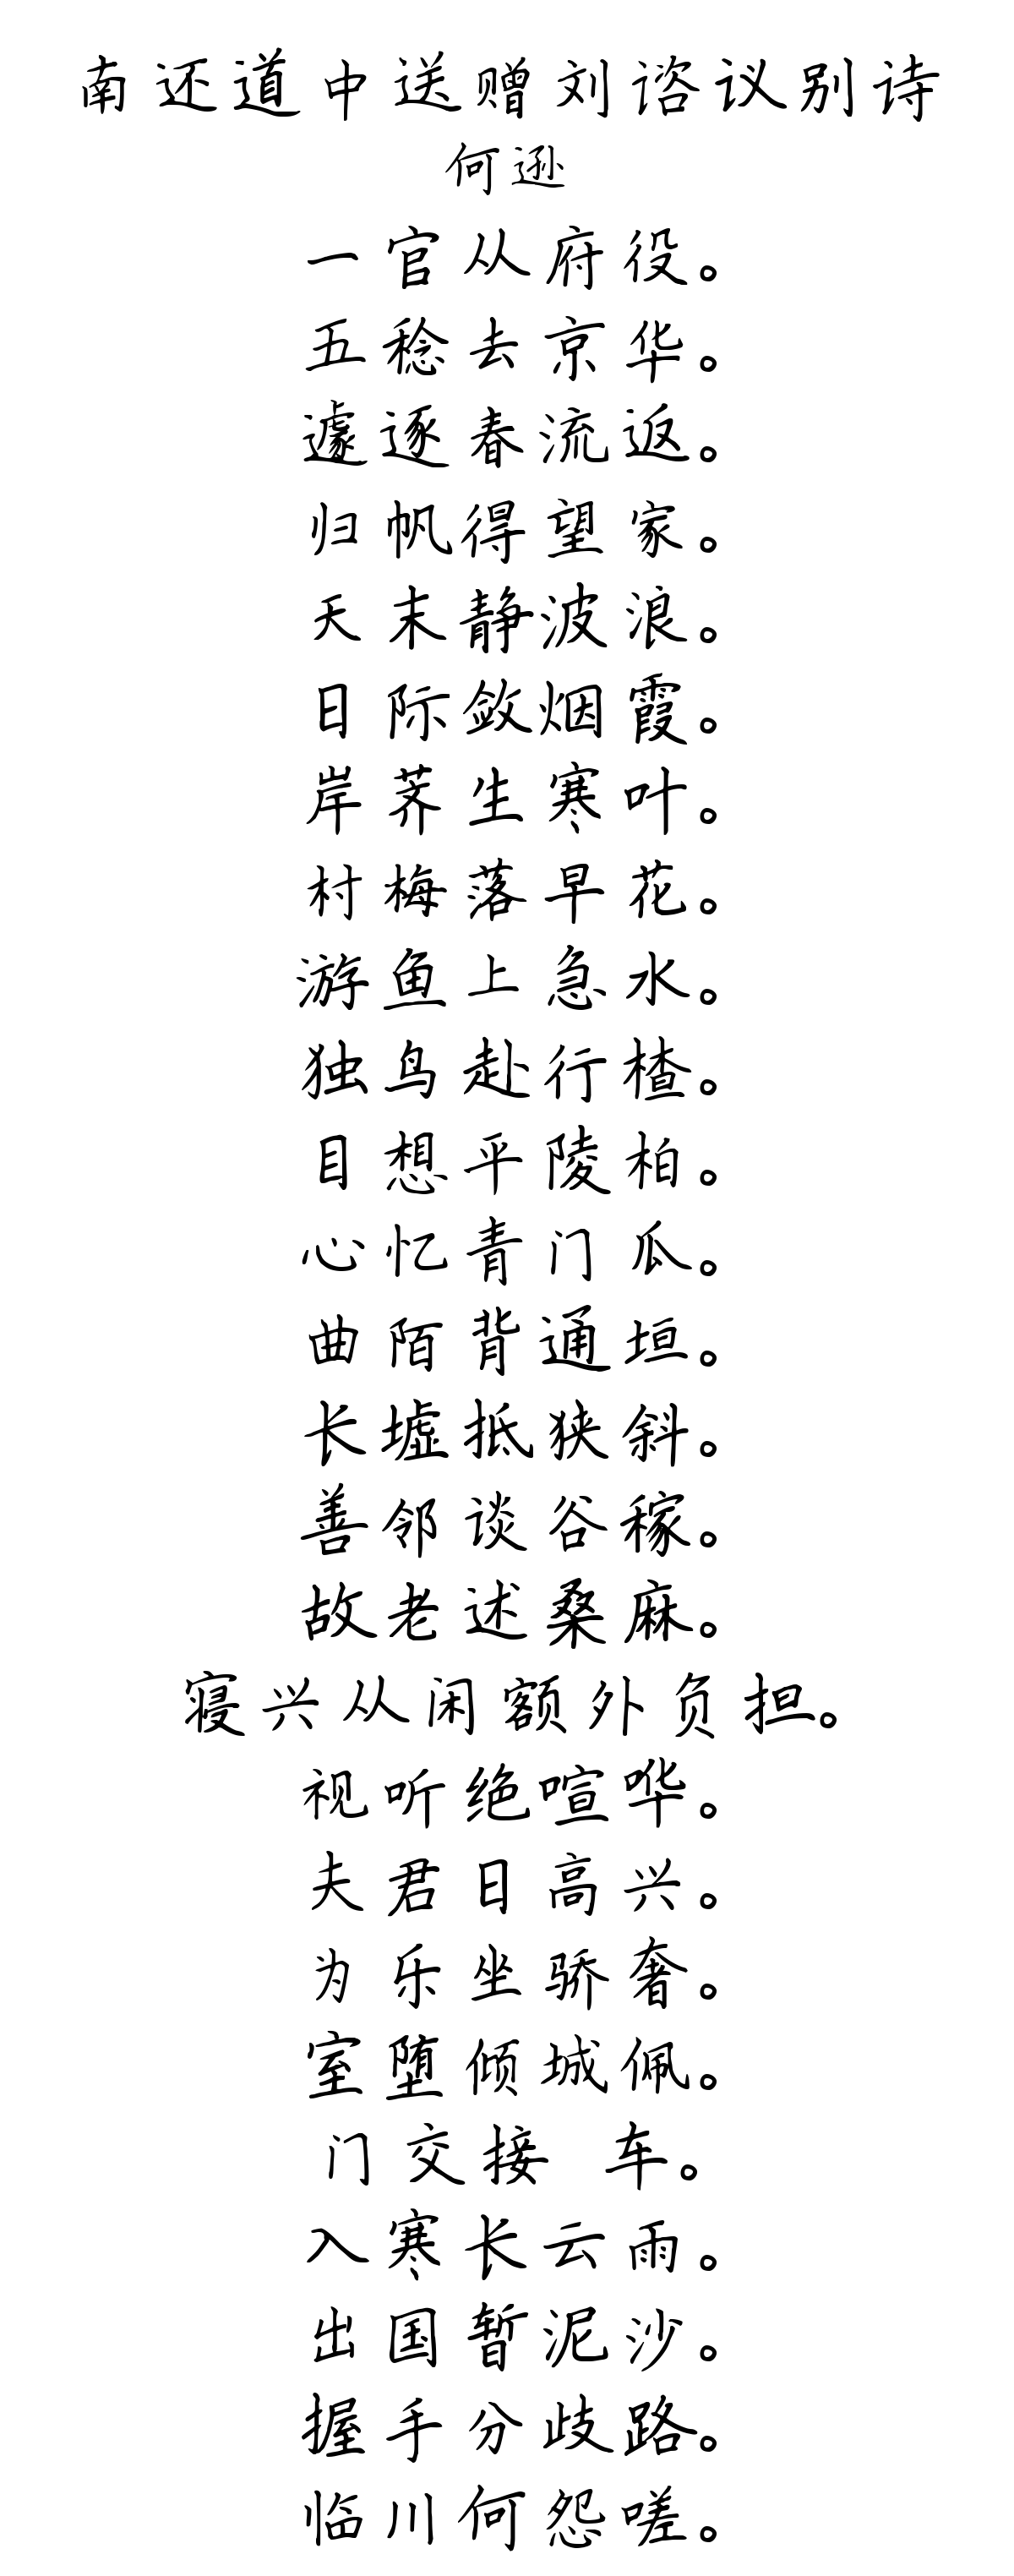 南还道中送赠刘谘议别诗
何逊
一官从府役。
五稔去京华。
遽逐春流返。
归帆得望家。
天末静波浪。
日际敛烟霞。
岸荠生寒叶。
村梅落早花。
游鱼上急水。
独鸟赴行楂。
目想平陵柏。
心忆青门瓜。
曲陌背通垣。
长墟抵狭斜。
善邻谈谷稼。
故老述桑麻。
寝兴从闲额外负担。
视听绝喧哗。
夫君日高兴。
为乐坐骄奢。
室堕倾城佩。
门交接 车。
入寒长云雨。
出国暂泥沙。
握手分歧路。
临川何怨嗟。